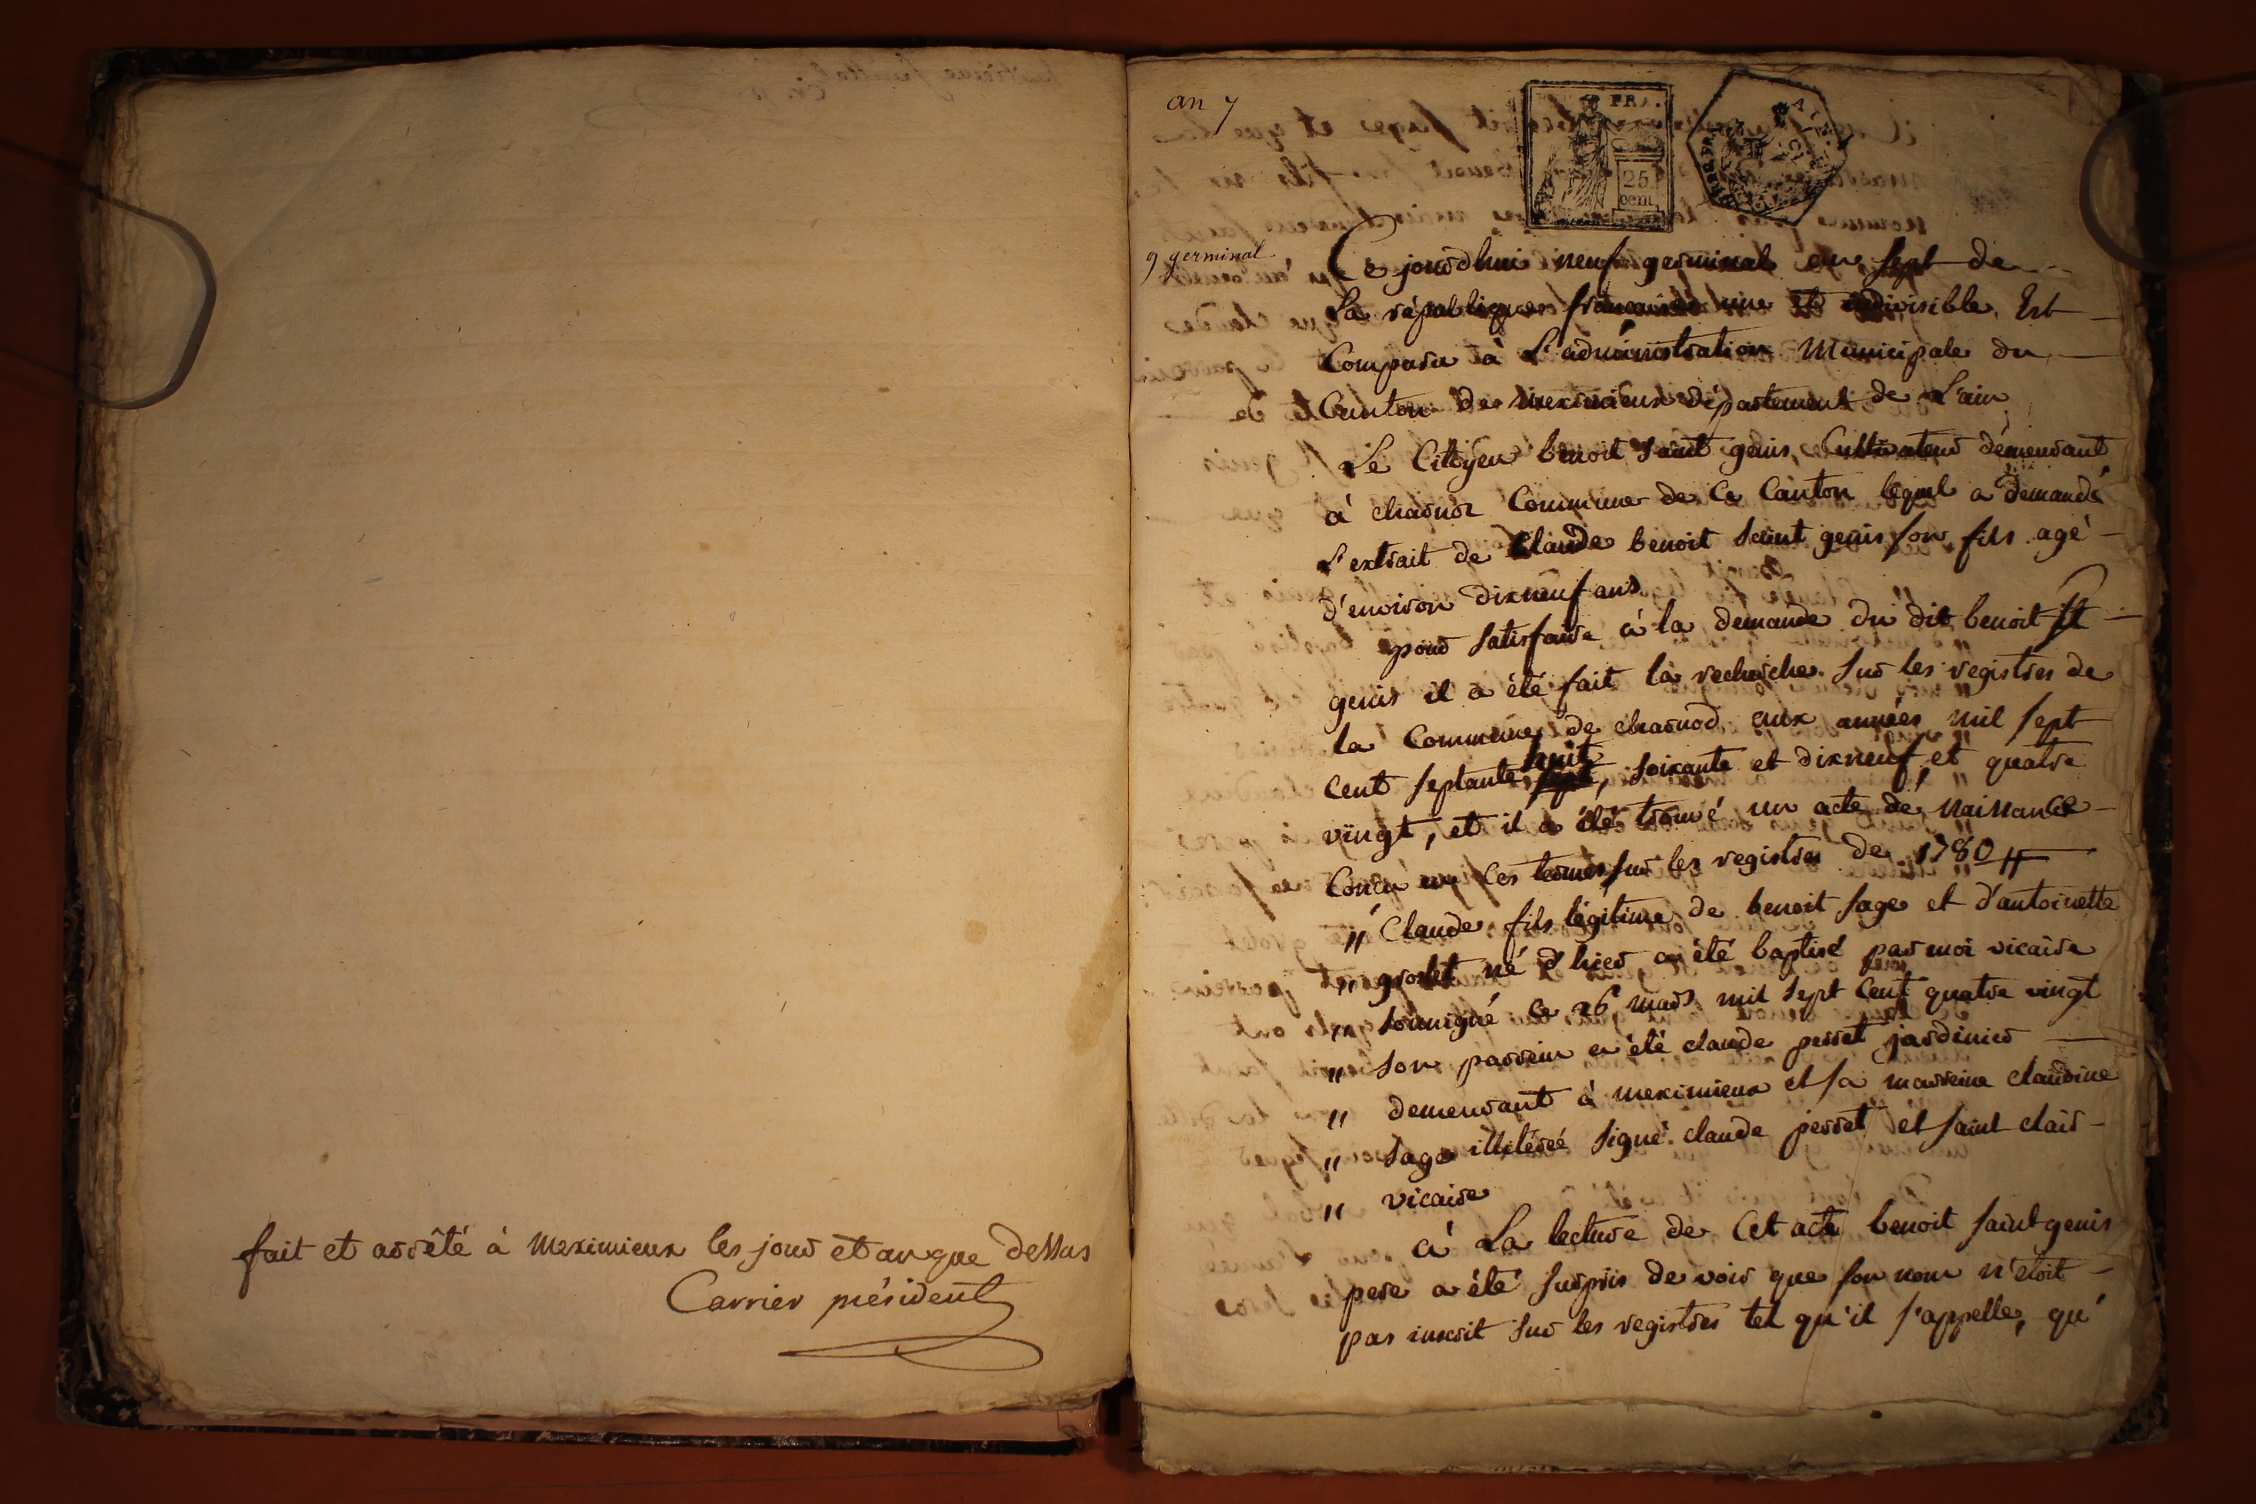 fait et arrêté à meximieux les jour et an que dessus
Carrier président
an 7
FRA.
25
cent
9 germinal
Ce jourdhui neuf germinal an sept de
la république française une et indivisible Est
Comparu à L'administration Municipale du
Canton de meximieux département de L'ain
Le Citoyen benoit Saint genis, Cultivateur démeurant
à charnoz Commune de Ce Canton lequel a demandé
L'extrait de Claude benoit Saint genis son fils agé
d'environ dixneuf ans
pour satisfaire à la demande du dit benoit St
genis il a été fait la recherche sur les registres de
la Commune de charnod aux années mil sept
cent septante huit, soixante et dixneuf et quatre
vingt, et il a été trouvé un acte de naissance
Concu en ces termes sur les registres de 1780 //
" Claude fils légitime de benoit sage et d'antoinette
" grolet né d'hier a été baptisé par moi vicaire
" soussigné ce 26 mars mil sept cent quatre vingt
" son parrein a été claude perret jardinier
" demeurant à meximieux et sa marreine claudine
" sage illitérée signé claude perret et saint clair
" vicaire
à La lecture de Cet acte benoit saint genis
pere a été surpris de voir que son nom n'étoit
pas inscrit sur les registres tel qu'il s'appelle, qu'